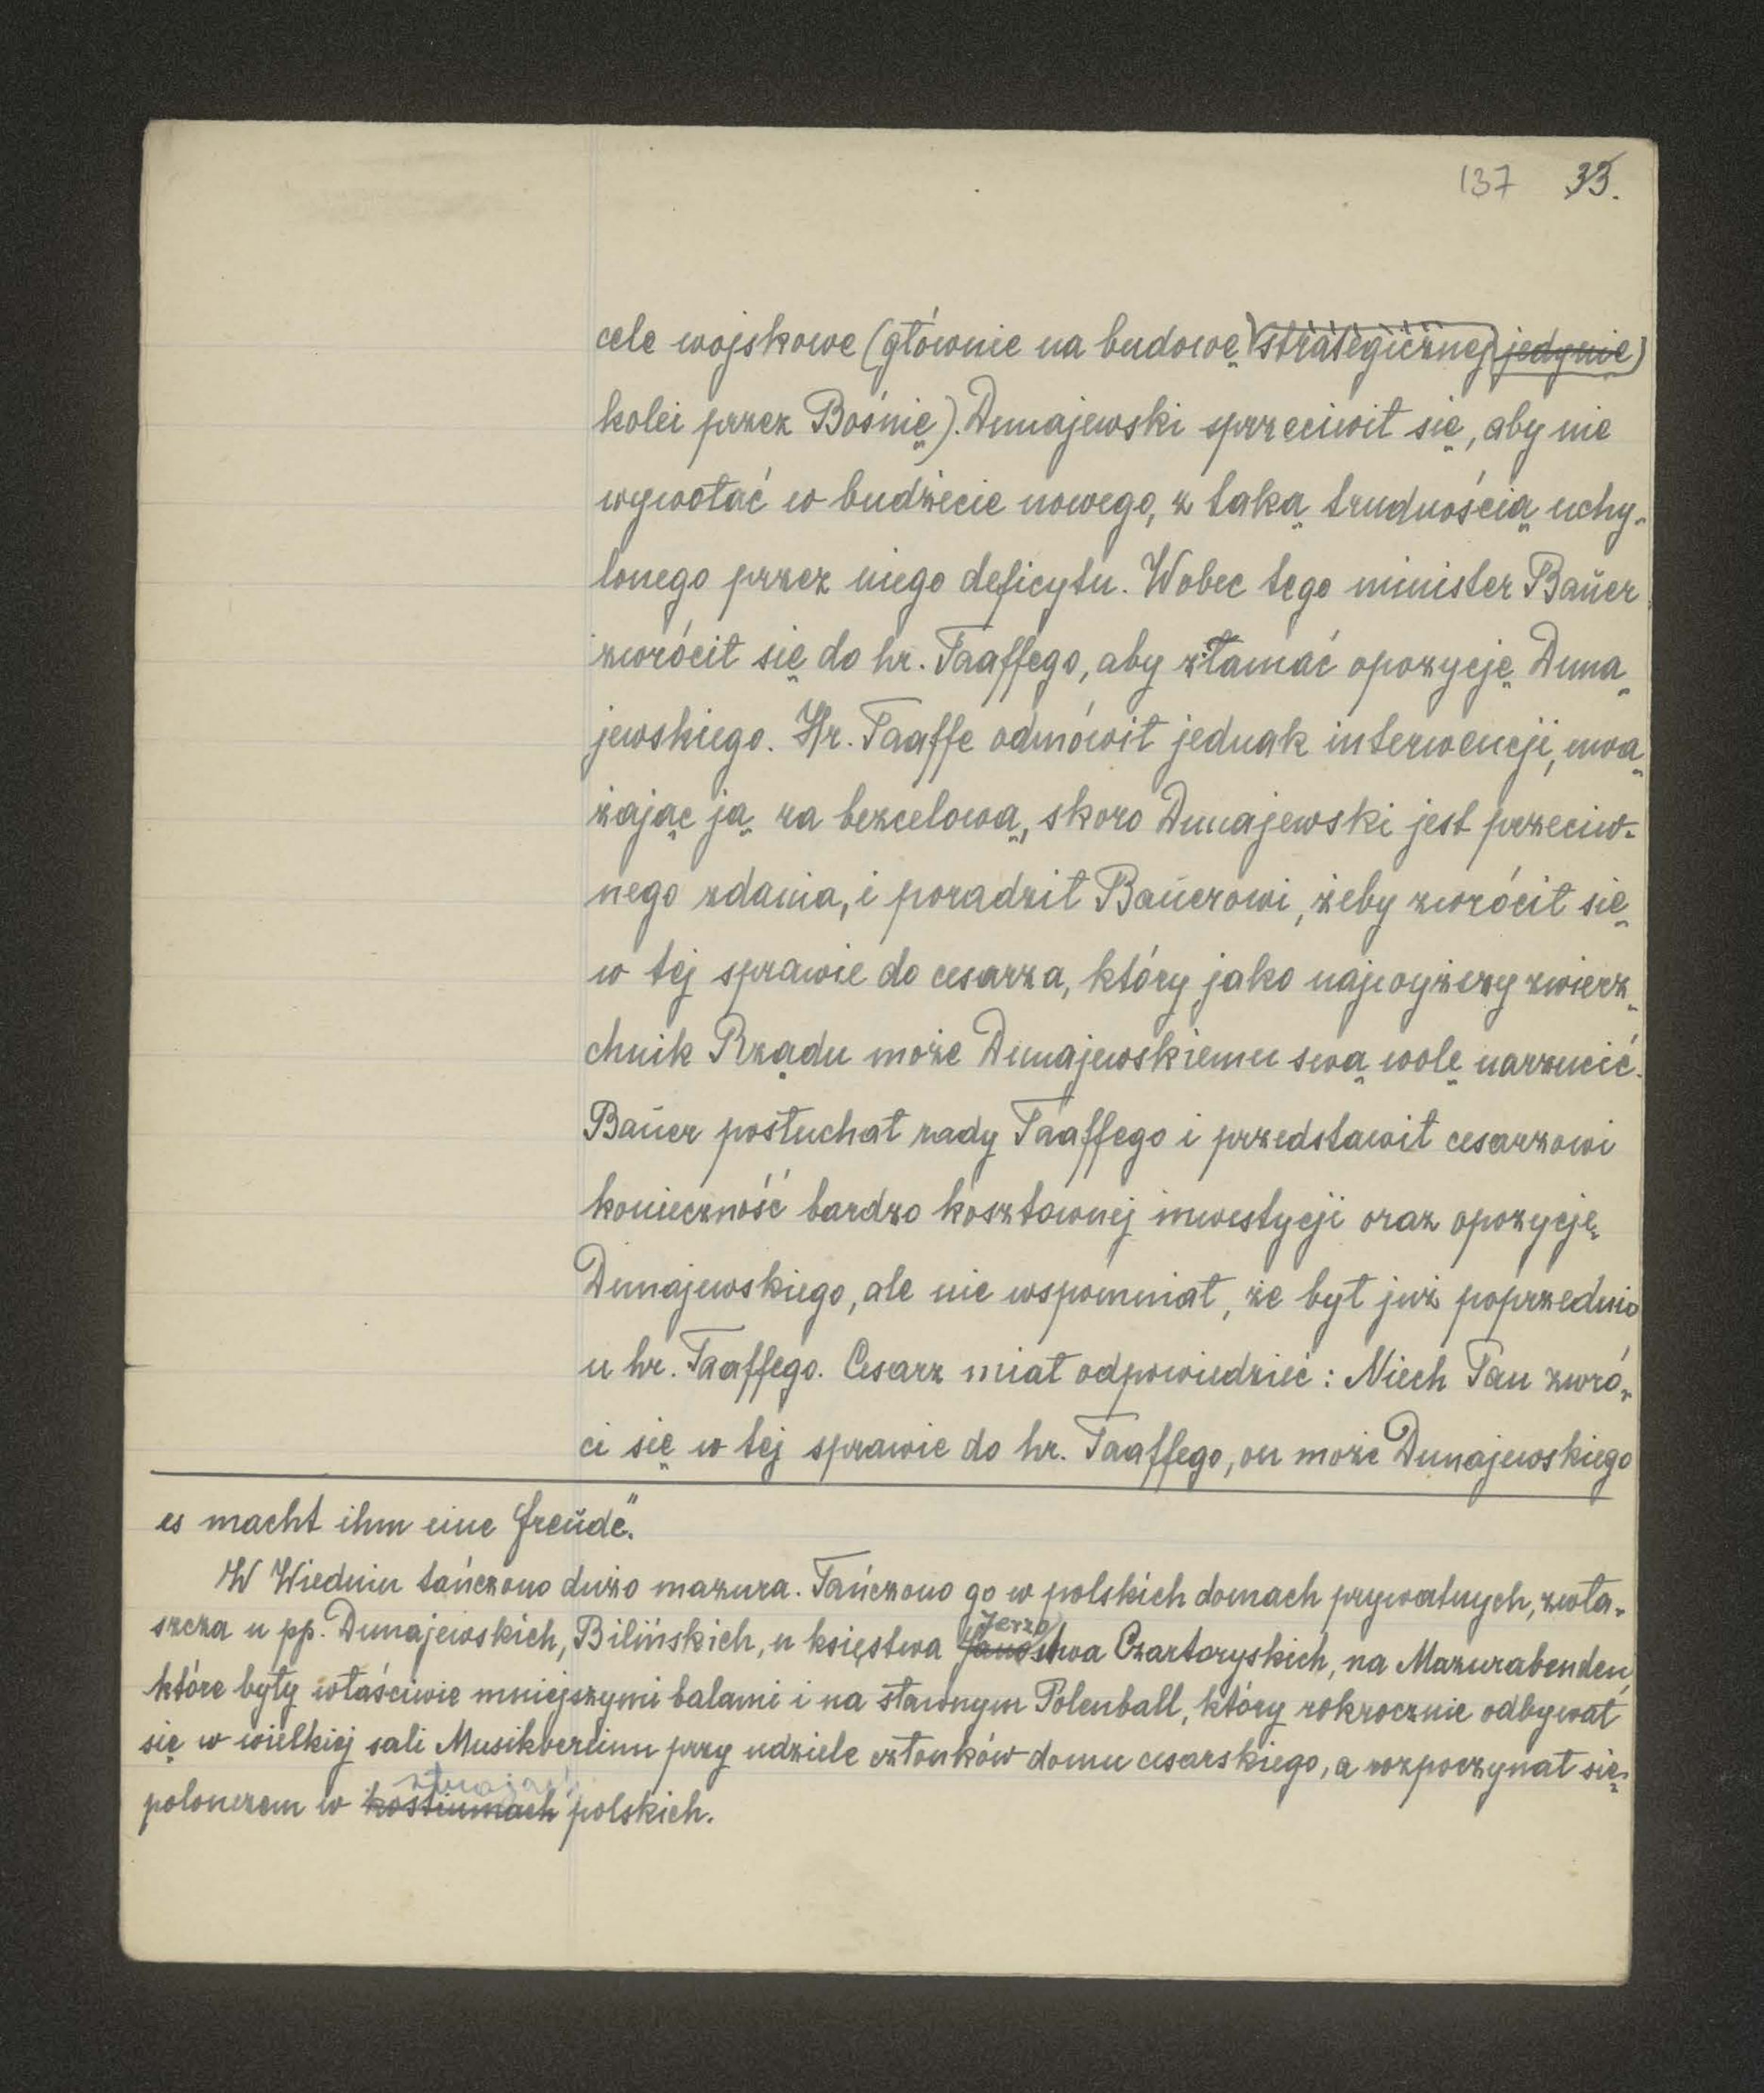 137 33.
cele wojskowe (głównie na budowę strategicznej jedynie)
kolei przez Bośnię). Dunajewski sprzeciwił się, aby nie
wywołać w budżecie nowego, z taką trudnością uchy-
lonego przez niego deficytu. Wobec tego minister Baŭer
zwrócił się do hr. Taaffego, aby złamać opozycję Duna-
jewskiego. Hr. Taaffe odmówił jednak interwencji, uwa-
żając ją za bezcelową, skoro Dunajewski jest przeciw-
nego zdania, i poradził Baŭerowi, żeby zwrócił się
w tej sprawie do cesarza, który jako najwyższy zwierz-
chnik Rządu może Dunajewskiemu swą wolę narzucić.
Baŭer posłuchał rady Taaffego i przedstawił cesarzowi
konieczność bardzo kosztownej inwestycji oraz opozycję
Dunajewskiego, ale nie wspomniał, że był już poprzednio
u hr. Taaffego. Cesarz miał odpowiedzieć: Niech Pan zwró-
ci się w tej sprawie do hr. Taaffego, on może Dunajewskiego
es macht ihm eine Freŭde".
W Wiedniu tańczono dużo mazura. Tańczono go w polskich domach prywatnych, zwła-
Jerzo
szcza u pp. Dunajewskich, Bilińskich, u księstwa Janostwa Czartoryskich, na Mazurabenden,
które były właściwie mniejszymi balami i na sławnym Polenball, który rokrocznie odbywał
się w wielkiej sali Musikvereinu przy udziele członków domu cesarskiego, a rozpoczynał się
strojach
polonezem w kostiumach polskich.